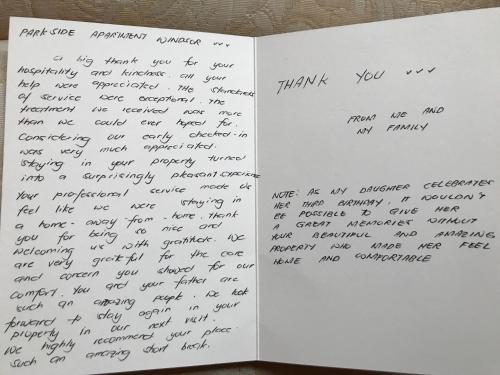 PARKSIDE APARTMENT WINDSOR ✓✓✓
a big thank you for your
hospitality and kindness. all your
help were appreciated. The standards
of service were exceptional. The
treatment we received was more
than we could ever hoped for.
Considering our early checked-in
was very much appreciated.
staying in your property turned
into a surprisingly pleasant experience
Your professional service made us
feel like we were staying in
a home-away-from-home. Thank
you for being so nice and
welcoming us with gratitude. We
are very grateful for the care
and concern you showed for our
comfort. You and your father are
such an amazing people. We look
forward to stay again in your
property in our next visit.
We highly recommend your place.
Such an amazing short break.
THANK YOU ✓✓✓
FROM ME AND
MY FAMILY
NOTE: AS MY DAUGHTER CELEBRATES
HER THIRD BIRTHDAY. IT WOULDN'T
BE POSSIBLE TO GIVE HER
A GREAT MEMORIES WITHOUT
YOUR BEAUTIFUL AND AMAZING
PROPERTY WHO MADE HER FEEL
HOME AND COMFORTABLE